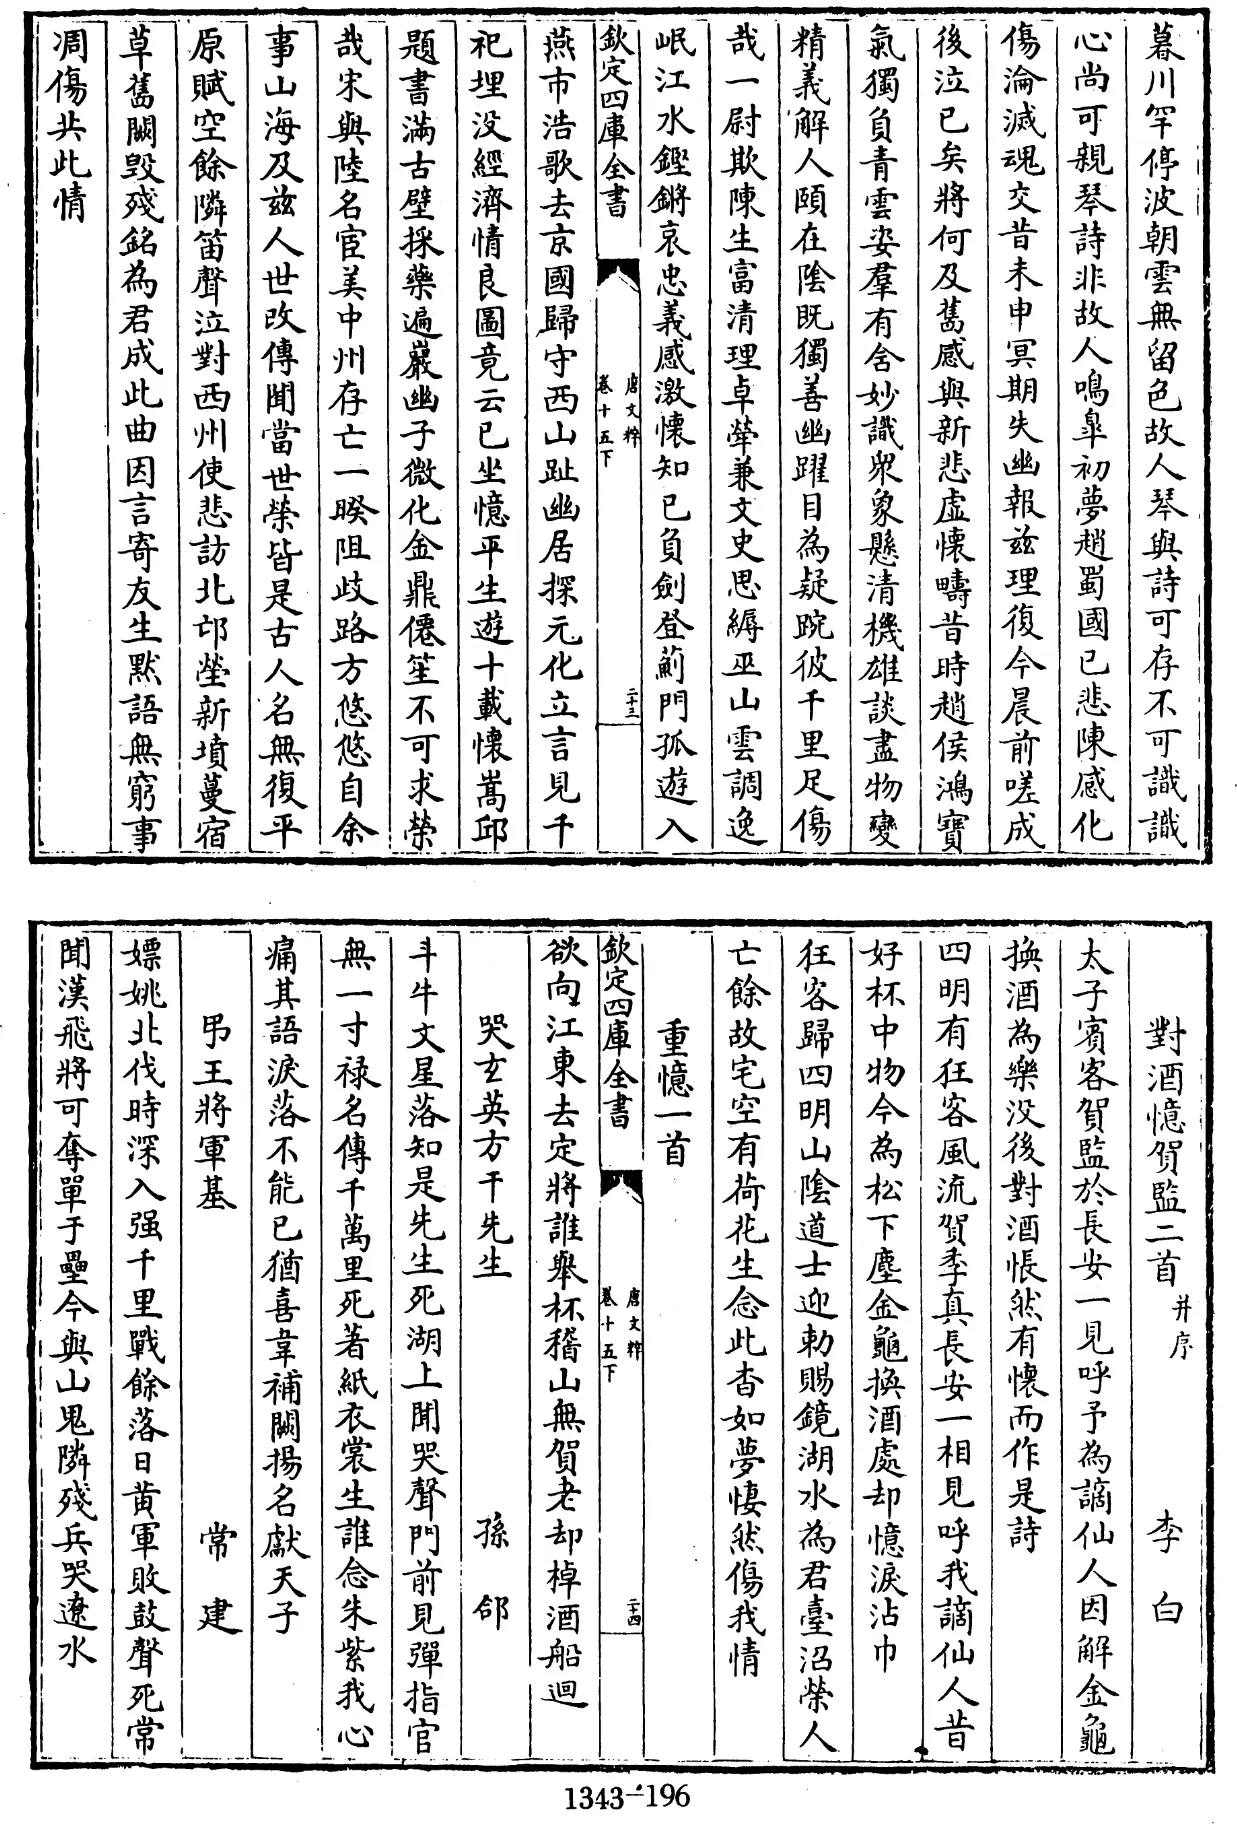 暮川罕停波朝雲無留色故人琴與詩可存不可識識
心尚可親琴詩非故人鳴臯初夢趙蜀國已悲陳感化
傷淪滅魂交昔未申冥期失幽報兹理復今晨前嗟成
後泣已矣將何及舊感與新悲虛懷疇昔時趙侯鴻寶
氣獨負青雲姿羣有含妙識衆象懸清機雄談盡物變
精義解人頤在陰既獨善幽躍目為疑踠彼千里足傷
哉一尉欺陳生富清理卓犖兼文史思縟巫山雲調逸
岷江水鏗鏘哀忠義感激懷知已負劍登薊門孤遊入
欽定四庫全書
唐文粹
卷十五下
二十三
燕市浩歌去京國歸守西山趾幽居探元化立言見千
祀埋没經濟情良圖竟云已坐憶平生遊十載懷嵩邱
題書滿古壁採藥遍巖幽子微化金鼎僊笙不可求榮
哉宋與陸名宦美中州存亡一暌阻歧路方悠悠自余
事山海及兹人世改傳聞當世榮皆是古人名無復平
原賦空餘隣笛聲泣對西州使悲訪北邙塋新墳蔓宿
草舊闕毁殘銘為君成此曲因言寄友生默語無窮事
凋傷共此情
對酒憶賀監二首并序 李白
太子賓客賀監於長安一見呼予為謫仙人因解金龜
換酒為樂没後對酒悵然有懷而作是詩
四明有狂客風流賀季真長安一相見呼我謫仙人昔
好杯中物今為松下塵金龜換酒處却憶淚沾巾
狂客歸四明山陰道士迎勅賜鏡湖水為君臺沼榮人
亡餘故宅空有荷花生念此杳如夢悽然傷我情
重憶一首
欽定四庫全書
唐文粹
卷十五下
二十四
欲向江東去定將誰舉杯稽山無賀老却棹酒船迴
哭玄英方干先生 孫郃
斗牛文星落知是先生死湖上聞哭聲門前見彈指官
無一寸禄名傳千萬里死著紙衣裳生誰念朱紫我心
痛其語淚落不能已猶喜韋補闕揚名獻天子
弔王將軍基 常建
嫖姚北伐時深入强千里戰餘落日黄軍敗鼓聲死常
聞漢飛將可奪單于壘今與山鬼隣殘兵哭遼水
1343-196